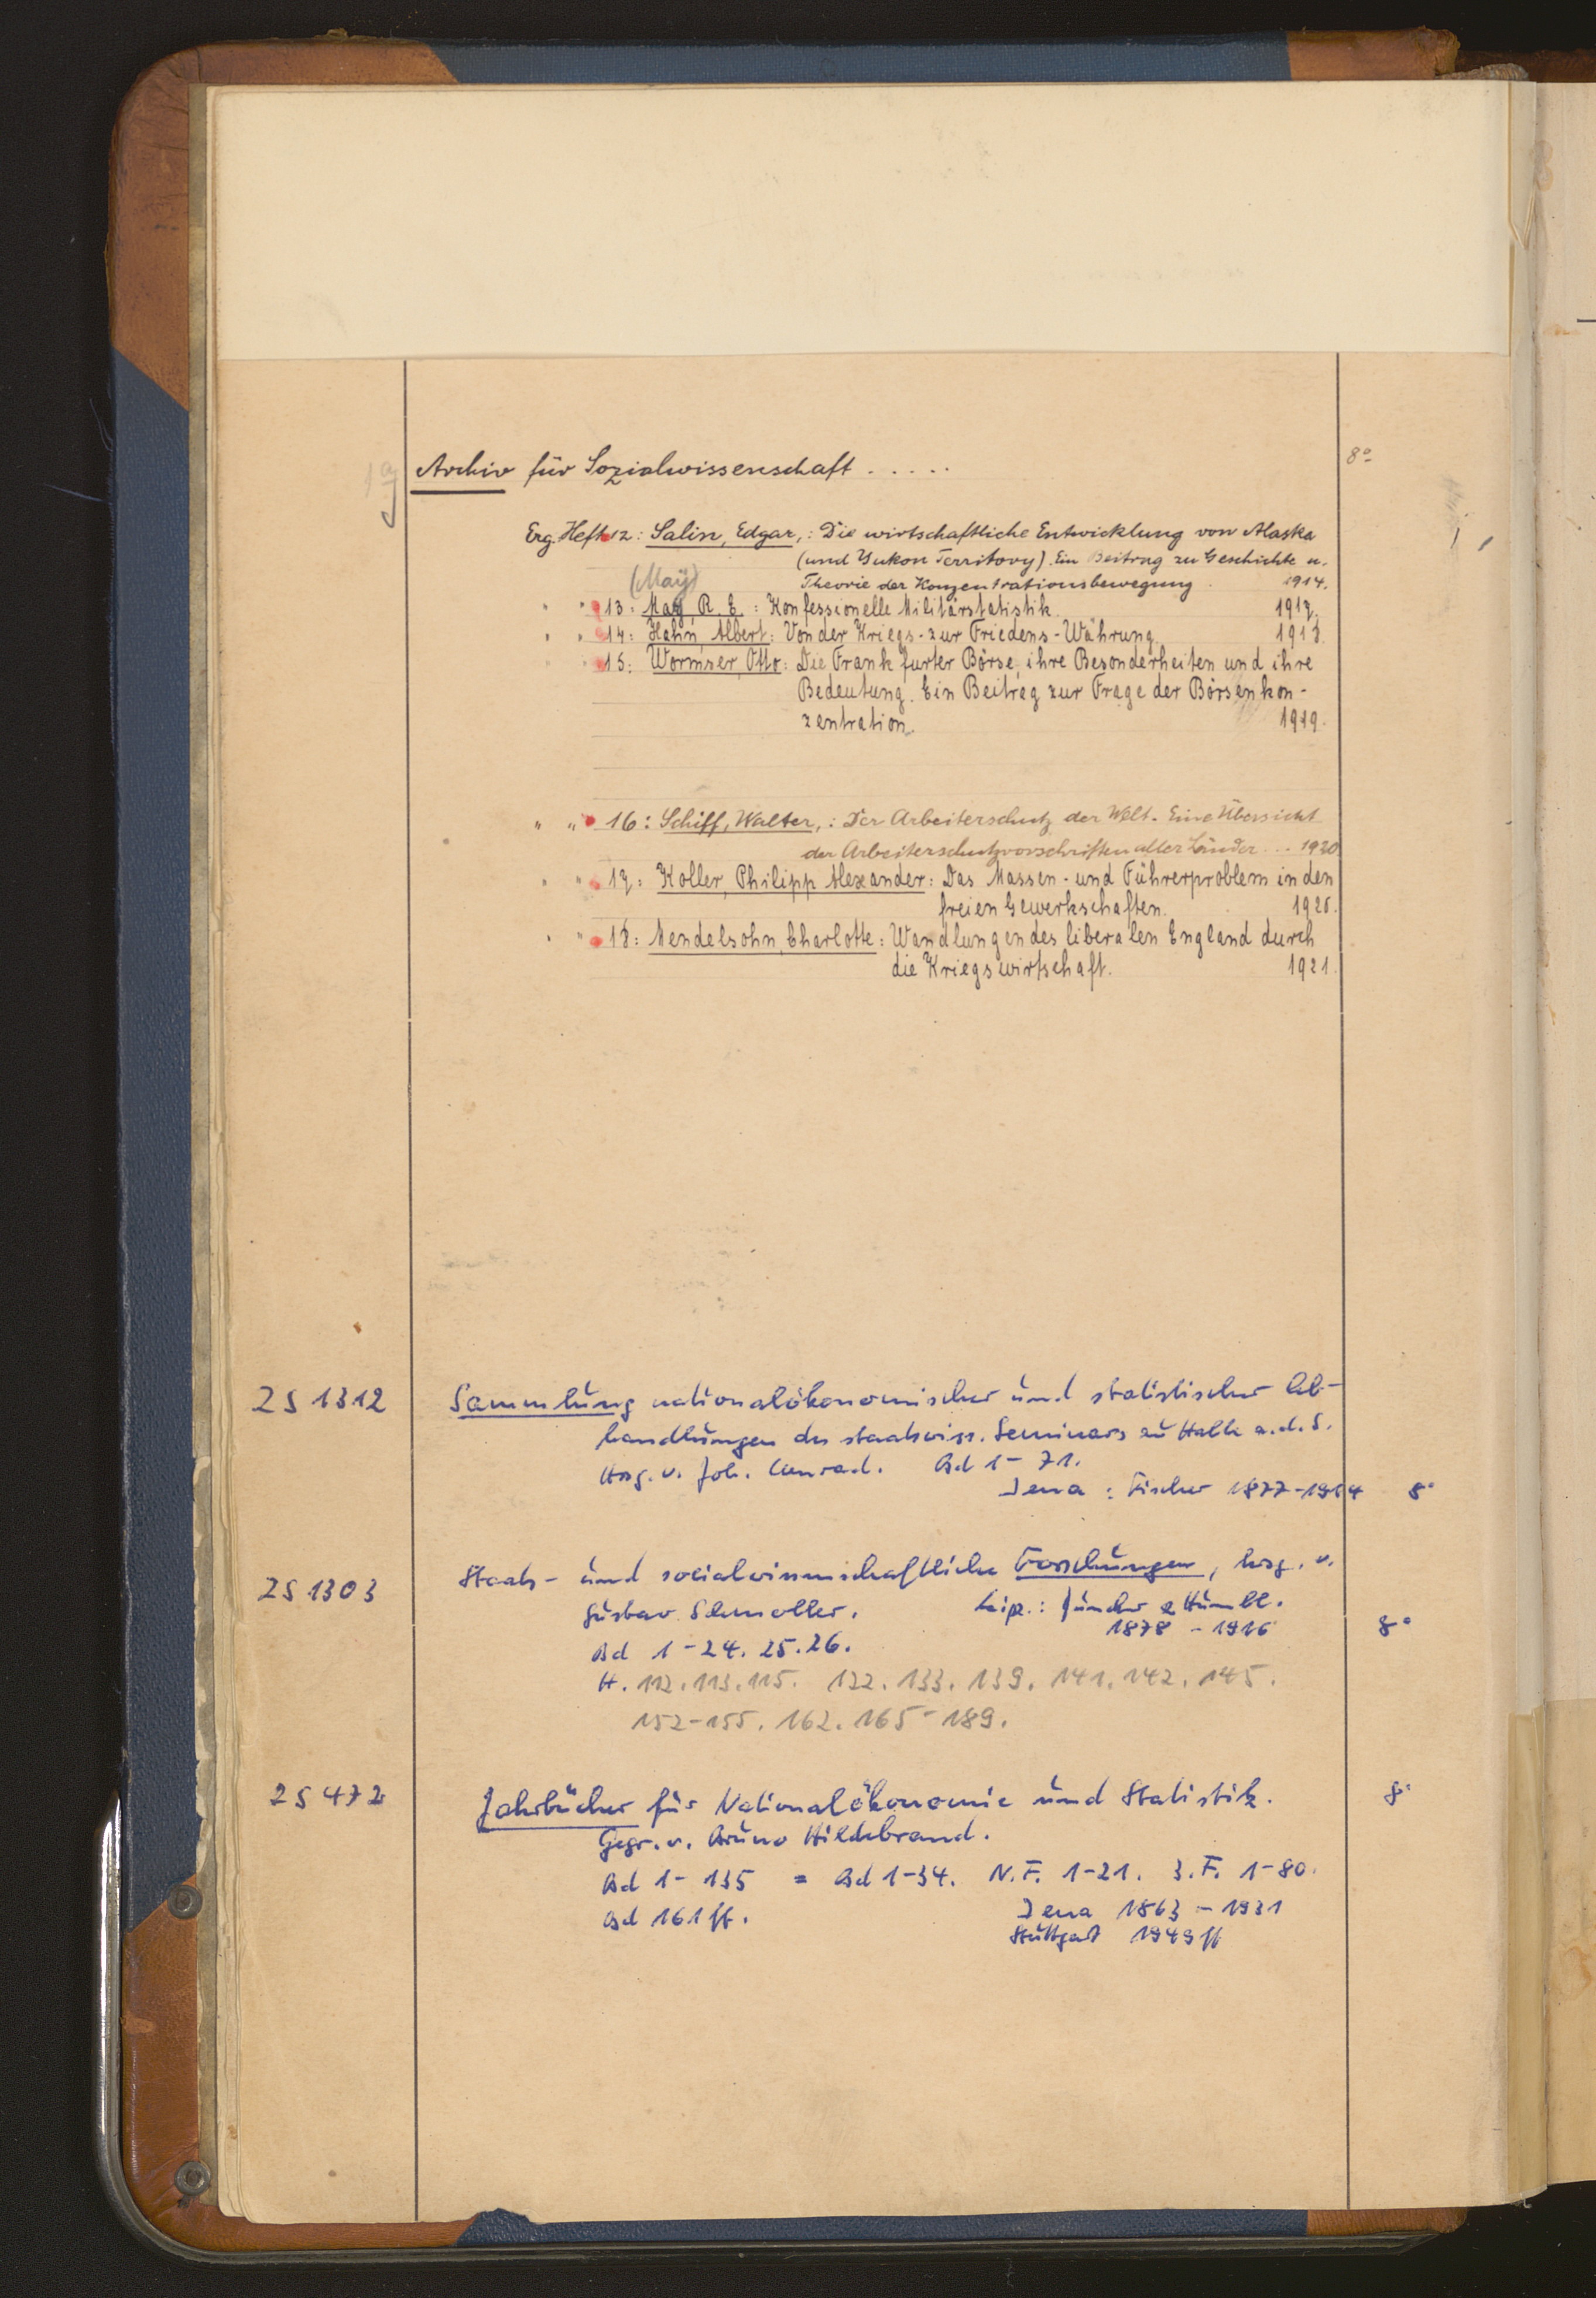 Archiv für Sozialwissenschaft . . . . . 8°
Erg. Heft 12: Salin, Edgar,: Die wirtschaftliche Entwicklung von Alaska
(und Yukon Territory). Ein Beitrag zu Geschichte u.
(May) Theorie der Konzentrationsbewegung. 1914.
" " 13: May R. E.: Konfessionelle Militärstatistik. 1917.
" " 14: Hahn, Albert: Von der Kriegs- zur Friedens-Währung. 1918.
" " 15: Wormser, Otto: Die Frankfurter Börse, ihre Besonderheiten und ihre
Bedeutung. Ein Beitrag zur Frage der Börsenkon-
zentration. 1919.
" " 16: Schiff, Walter,: Der Arbeiterschutz der Welt. Eine Übersicht
der Arbeiterschutzvorschriften aller Länder ... 1920
" " 17: Koller, Philipp Alexander: Das Massen- und Führerproblem in den
freien Gewerkschaften. 1920.
" " 18: Mendelsohn, Charlotte: Wandlungen des liberalen England durch
die Kriegswirtschaft. 1921.
ZS 1312 Sammlung nationalökonomischer und statistischer Ab-
handlungen des staatswiss. Seminars zu Halle a.d.S.
Hrsg. v. Joh. Conrad. Bd 1-71.
Jena: Fischer 1877-1914 8°
ZS 1303 Staats- und socialwissenschaftliche Forschungen, hrsg. v.
Gustav Schmoller. Leipz.: Duncker & Humbl.
1878 - 1916 8°
Bd 1-24. 25. 26.
H. 112. 113. 115. 122. 133. 139. 141. 142. 145.
152-155. 162. 165-189.
ZS 472 Jahrbücher für Nationalökonomie und Statistik. 8°
Gegr. v. Bruno Hildebrand.
Bd 1-135 = Bd 1-34. N.F. 1-21. 3.F. 1-80.
Bd 161 ff. Jena 1863-1931
Stuttgart 1949 ff